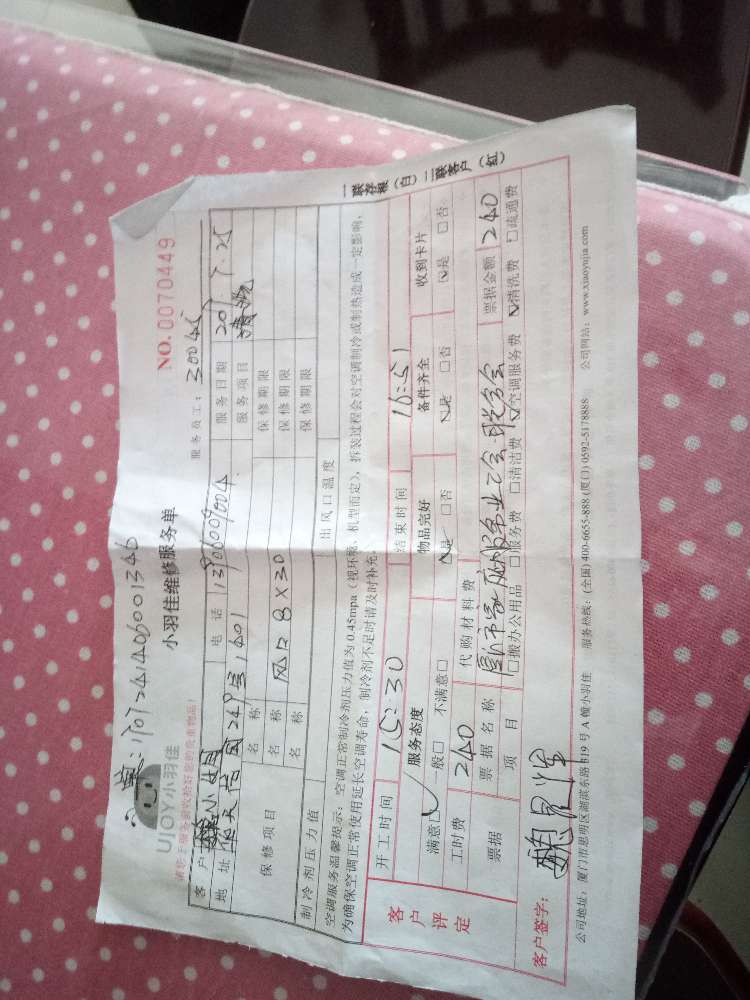 UJOY小羽佳
小羽佳维修服务单
NO. 0070449
服务员工: 30045
客户 小姐 电话
地址 服务日期 201 7.25
服务项目 清洗
保修项目
名称 风口 8×30 保修期限
名称 保修期限
名称 保修期限
制冷剂压力值 出风口温度
空调服务温馨提示: 空调正常制冷剂压力值为 0.45mpa (视环境、机型而定), 拆装过程会对空调制冷或制热造成一定影响,
为确保空调正常使用延长空调寿命, 制冷剂不足时请及时补充。
一联存根(白) 二联客户(红)
客户评定
开工时间 15:30 结束时间 16:51
服务态度 物品完好 备件齐全 收到卡片
满意☑ 一般□ 不满意□ ☑是 □否 ☑是 □否 ☑是 □否
工时费 240 代购材料费 票据金额 240
票据 票据名称
项目 □搬办公用品 □服务费 □清洁费 ☑空调服务费 ☑清洗费 □疏通费
客户签字:
公司地址: 厦门市思明区湖滨东路 819 号 A 幢小羽佳 服务热线: (全国) 400-6655-888 (厦门) 0592-5178888 公司网站: www.xiaoyujia.com